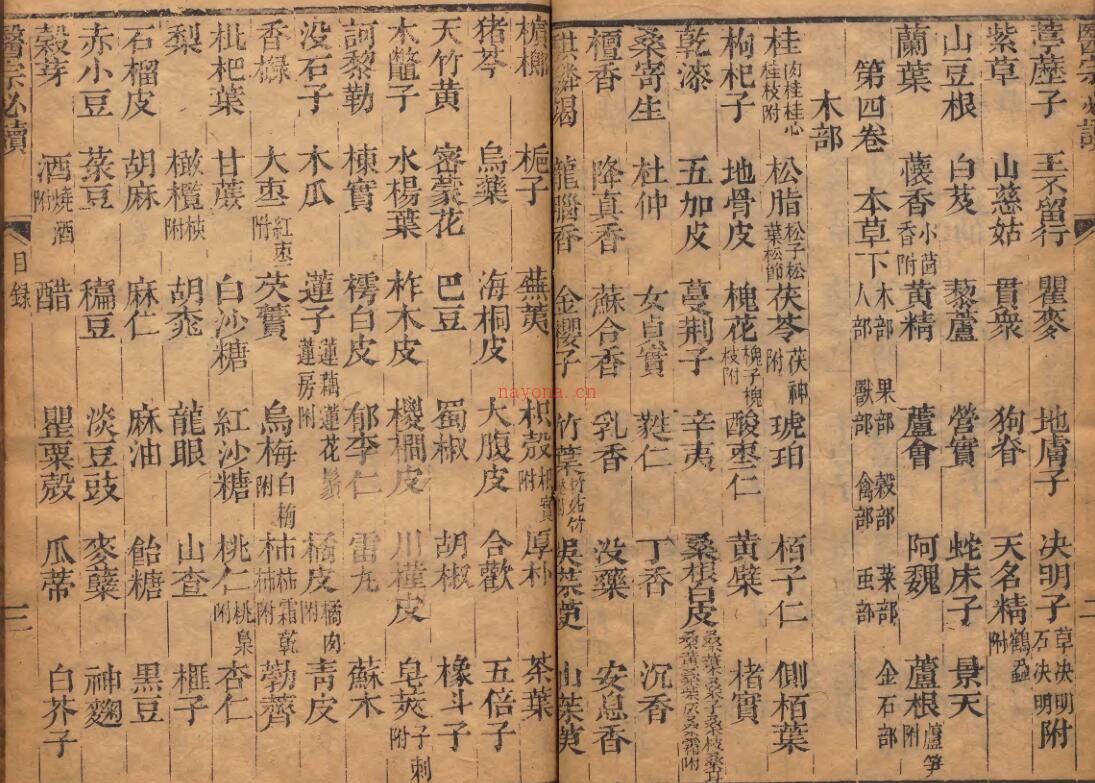 醫宗必讀
葶藶子 王不留行 瞿麥 地膚子 决明子 草决明 石决明附
紫草 山慈姑 貫衆 狗脊 天名精 鶴蝨附
山豆根 白芨 藜蘆 營實 蛇床子 景天
蘭葉 蘹香 小茴香附 黄精 蘆會 阿魏 蘆根 蘆笋附
第四卷 本草下 木部 果部 穀部 菜部 金石部 人部 獸部 禽部 䖝部
木部
桂 肉桂桂心桂枝附 松脂 松子松葉松節 茯苓 茯神附 琥珀 栢子仁 側栢葉
枸杞子 地骨皮 槐花 槐子槐枝附 酸棗仁 黄檗 楮實
乾漆 五加皮 蔓荆子 辛夷 桑根白皮 桑葉桑子桑枝桑耳桑黄桑柴灰桑霜附
桑寄生 杜仲 女貞實 蕤仁 丁香 沉香
檀香 降真香 蘇合香 乳香 没藥 安息香
騏驎竭 龍腦香 金櫻子 竹葉 吳茱萸 山茱萸
檳榔 梔子 蕪荑 枳殼 枳實附 厚朴 茶葉
猪苓 烏藥 海桐皮 大腹皮 合歡 五倍子
天竹黄 密蒙花 巴豆 蜀椒 胡椒 橡斗子
木鼈子 水楊葉 柞木皮 椶櫚皮 川槿皮 皂莢 子刺附
訶黎勒 楝實 樗白皮 郁李仁 雷丸 蘇木
没石子 木瓜 蓮子 蓮藕蓮花鬚蓮房附 橘皮 橘肉附 青皮
香櫞 大棗 紅棗附 芡實 烏梅 白梅附 柿 柿霜乾柿附 勃薺
梨 橄欖 核附 胡桃 龍眼 山查 榧子
枇杷葉 甘蔗 白沙糖 紅沙糖 桃仁 桃梟附 杏仁
石榴皮 胡麻 麻仁 麻油 飴糖 黑豆
赤小豆 菉豆 稨豆 淡豆豉 麥蘖 神麴
穀芽 酒 燒酒附 醋 罂粟殼 瓜蒂 白芥子
醫宗必讀 目録 三
nayona.cn